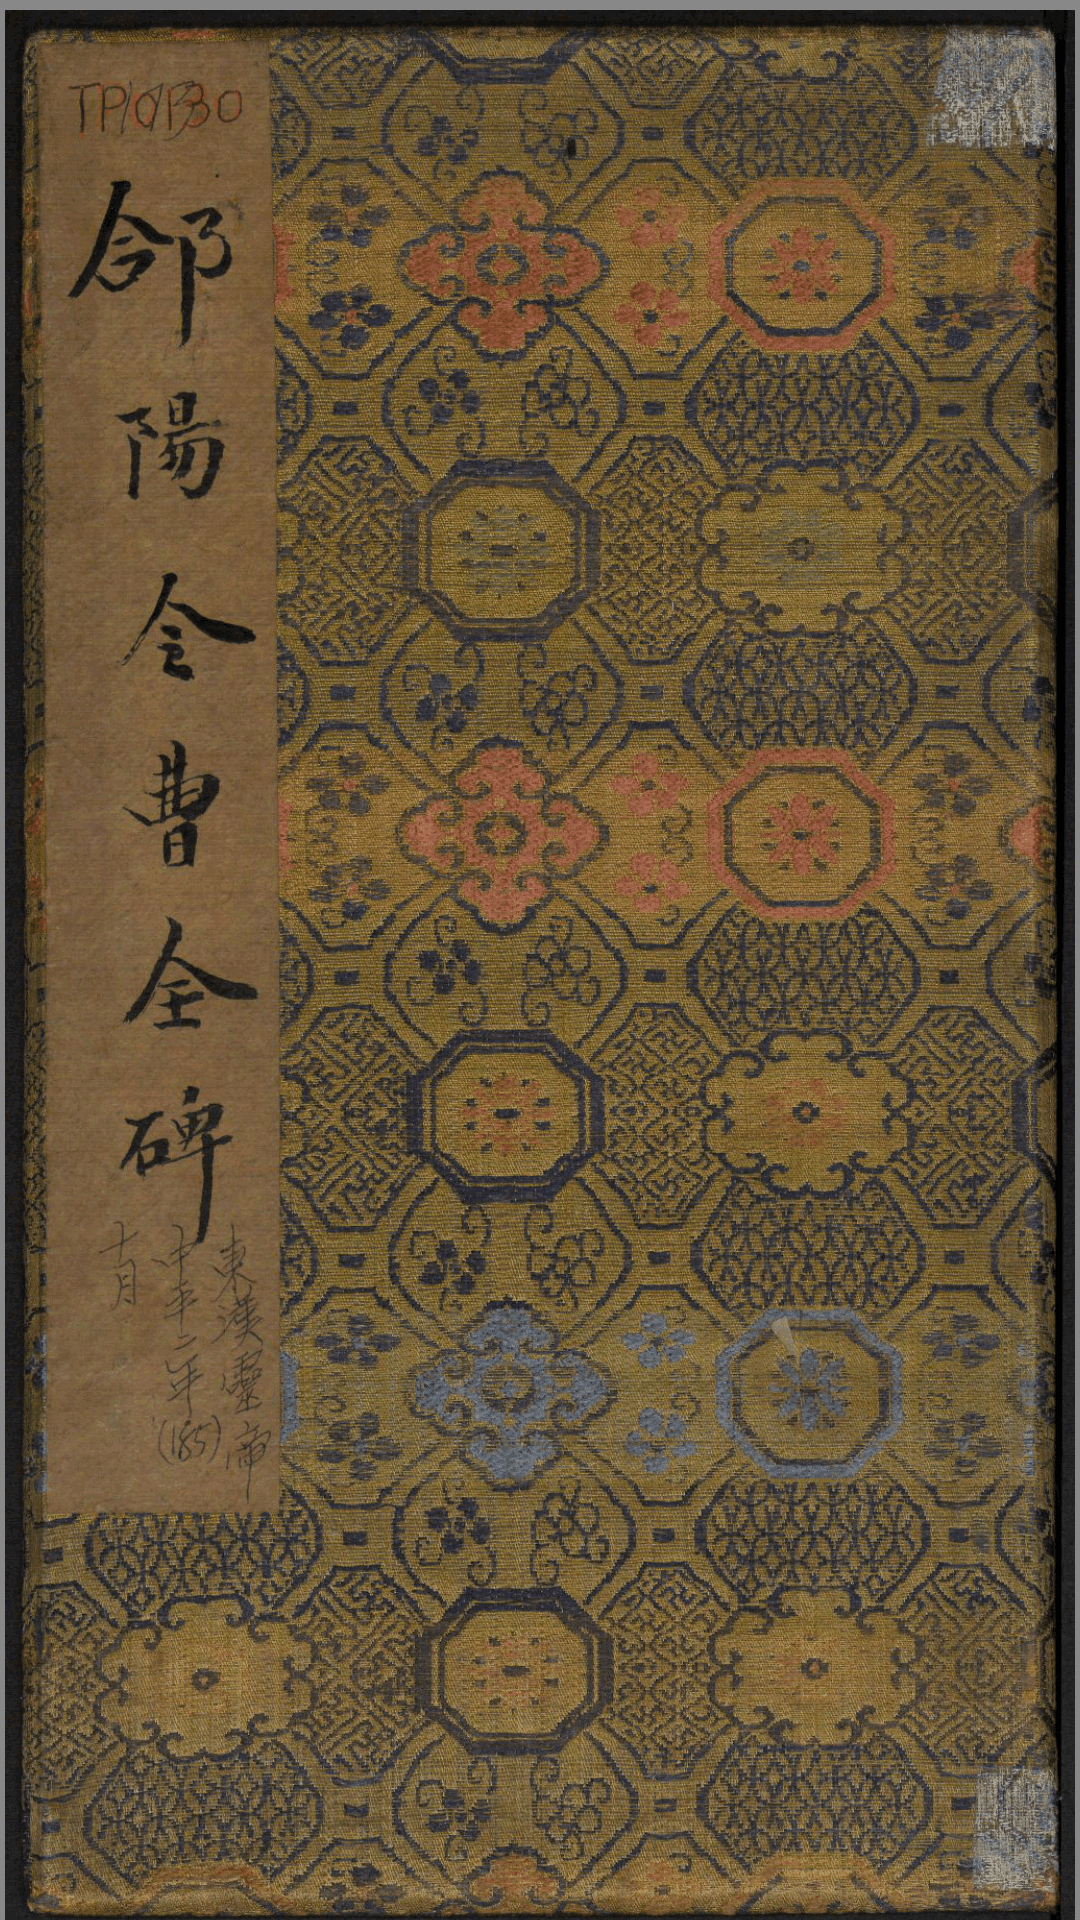 郃陽令曹全碑
東漢靈帝
中平二年(185)
十月